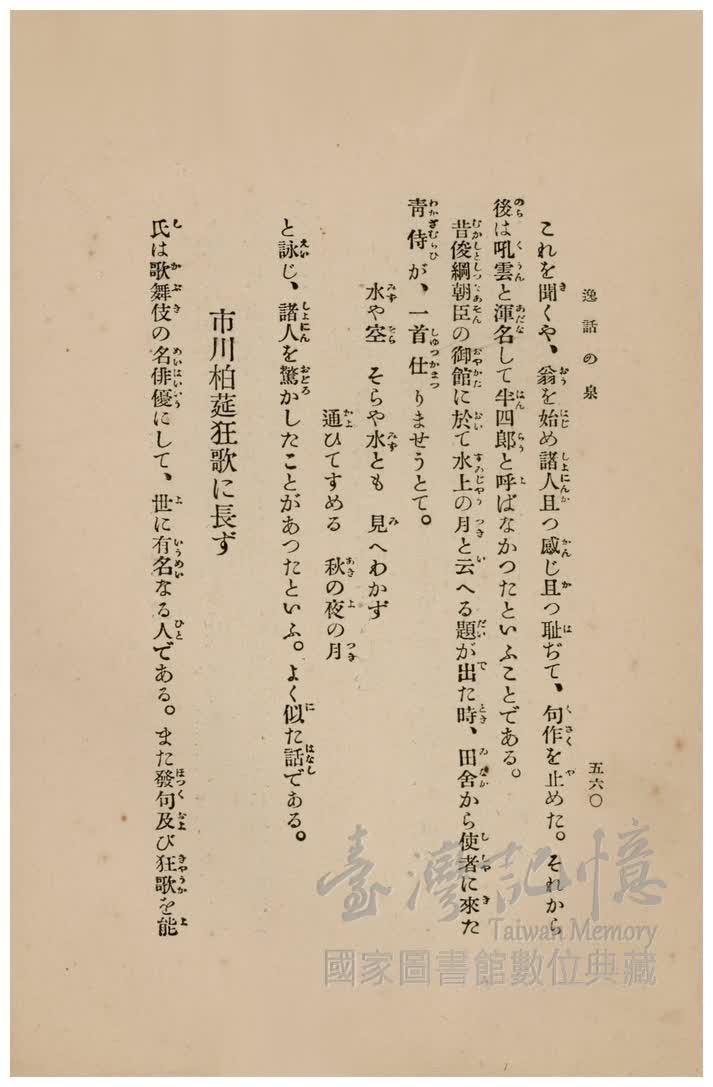 逸話の泉
五六〇
これを聞くや、翁を始め諸人且つ感じ且つ耻ぢて、句作を止めた。それから
後は吼雲と渾名して半四郎と呼ばなかつたといふことである。
昔俊綱朝臣の御館に於て水上の月と云へる題が出た時、田舍から使者に來た
青侍が、一首仕りませうとて。
水や空 そらや水とも 見へわかず
通ひてすめる 秋の夜の月
と詠じ、諸人を驚かしたことがあつたといふ。よく似た話である。
市川柏莚狂歌に長ず
氏は歌舞伎の名俳優にして、世に有名なる人である。また發句及び狂歌を能
臺灣記憶
Taiwan Memory
國家圖書館數位典藏